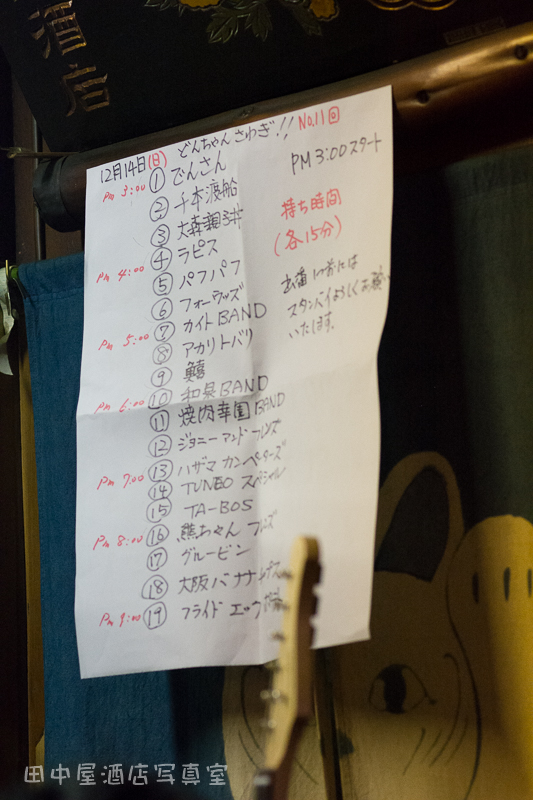 酒店
12月14日(日) どんちゃんさわぎ!! No.11回
PM 3:00スタート
PM 3:00 ① でんさん
② 千本渡船
③ 大森親子丼
PM 4:00 ④ ラピス
⑤ パフパフ
⑥ フォーウッズ
PM 5:00 ⑦ カイトBAND
⑧ アカリトバリ
⑨ 鱚
PM 6:00 ⑩ 和泉BAND
⑪ 焼肉幸園BAND
⑫ ジョニーアンドフレンズ
PM 7:00 ⑬ ハザマカンペターズ
⑭ TUNEO スペシャル
⑮ TA-BOS
PM 8:00 ⑯ 熊ちゃん
⑰ グルービン
⑱ 大阪バナナ
PM 9:00 ⑲ フライドエッグ
持ち時間
(各15分)
出番 前には
スタンバイよろしくお願い
いたします.
田中屋酒店写真室